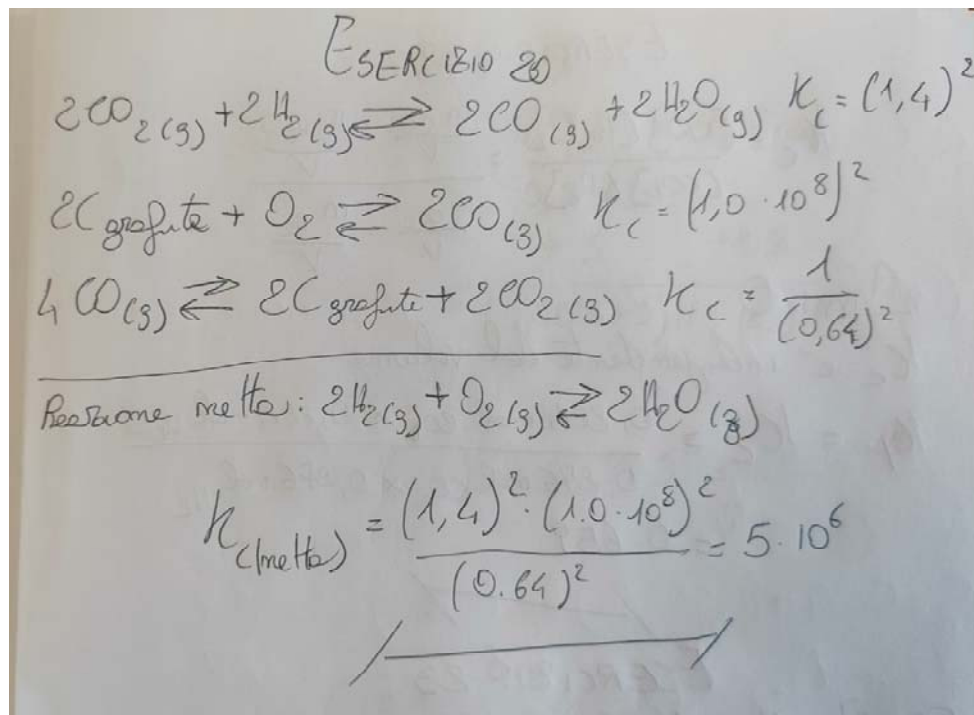 ESERCIZIO 20
2CO₂(g) + 2H₂(g) ⇌ 2CO(g) + 2H₂O(g) Kc = (1,4)²
2C grafite + O₂ ⇌ 2CO(g) Kc = (1,0 · 10⁸)²
4CO(g) ⇌ 2C grafite + 2CO₂(g) Kc = 1/(0,64)²
Reazione netta: 2H₂(g) + O₂(g) ⇌ 2H₂O(g)
Kc(netta) = (1,4)² · (1.0 · 10⁸)² / (0.64)² = 5 · 10⁶
ESERCIZIO 23